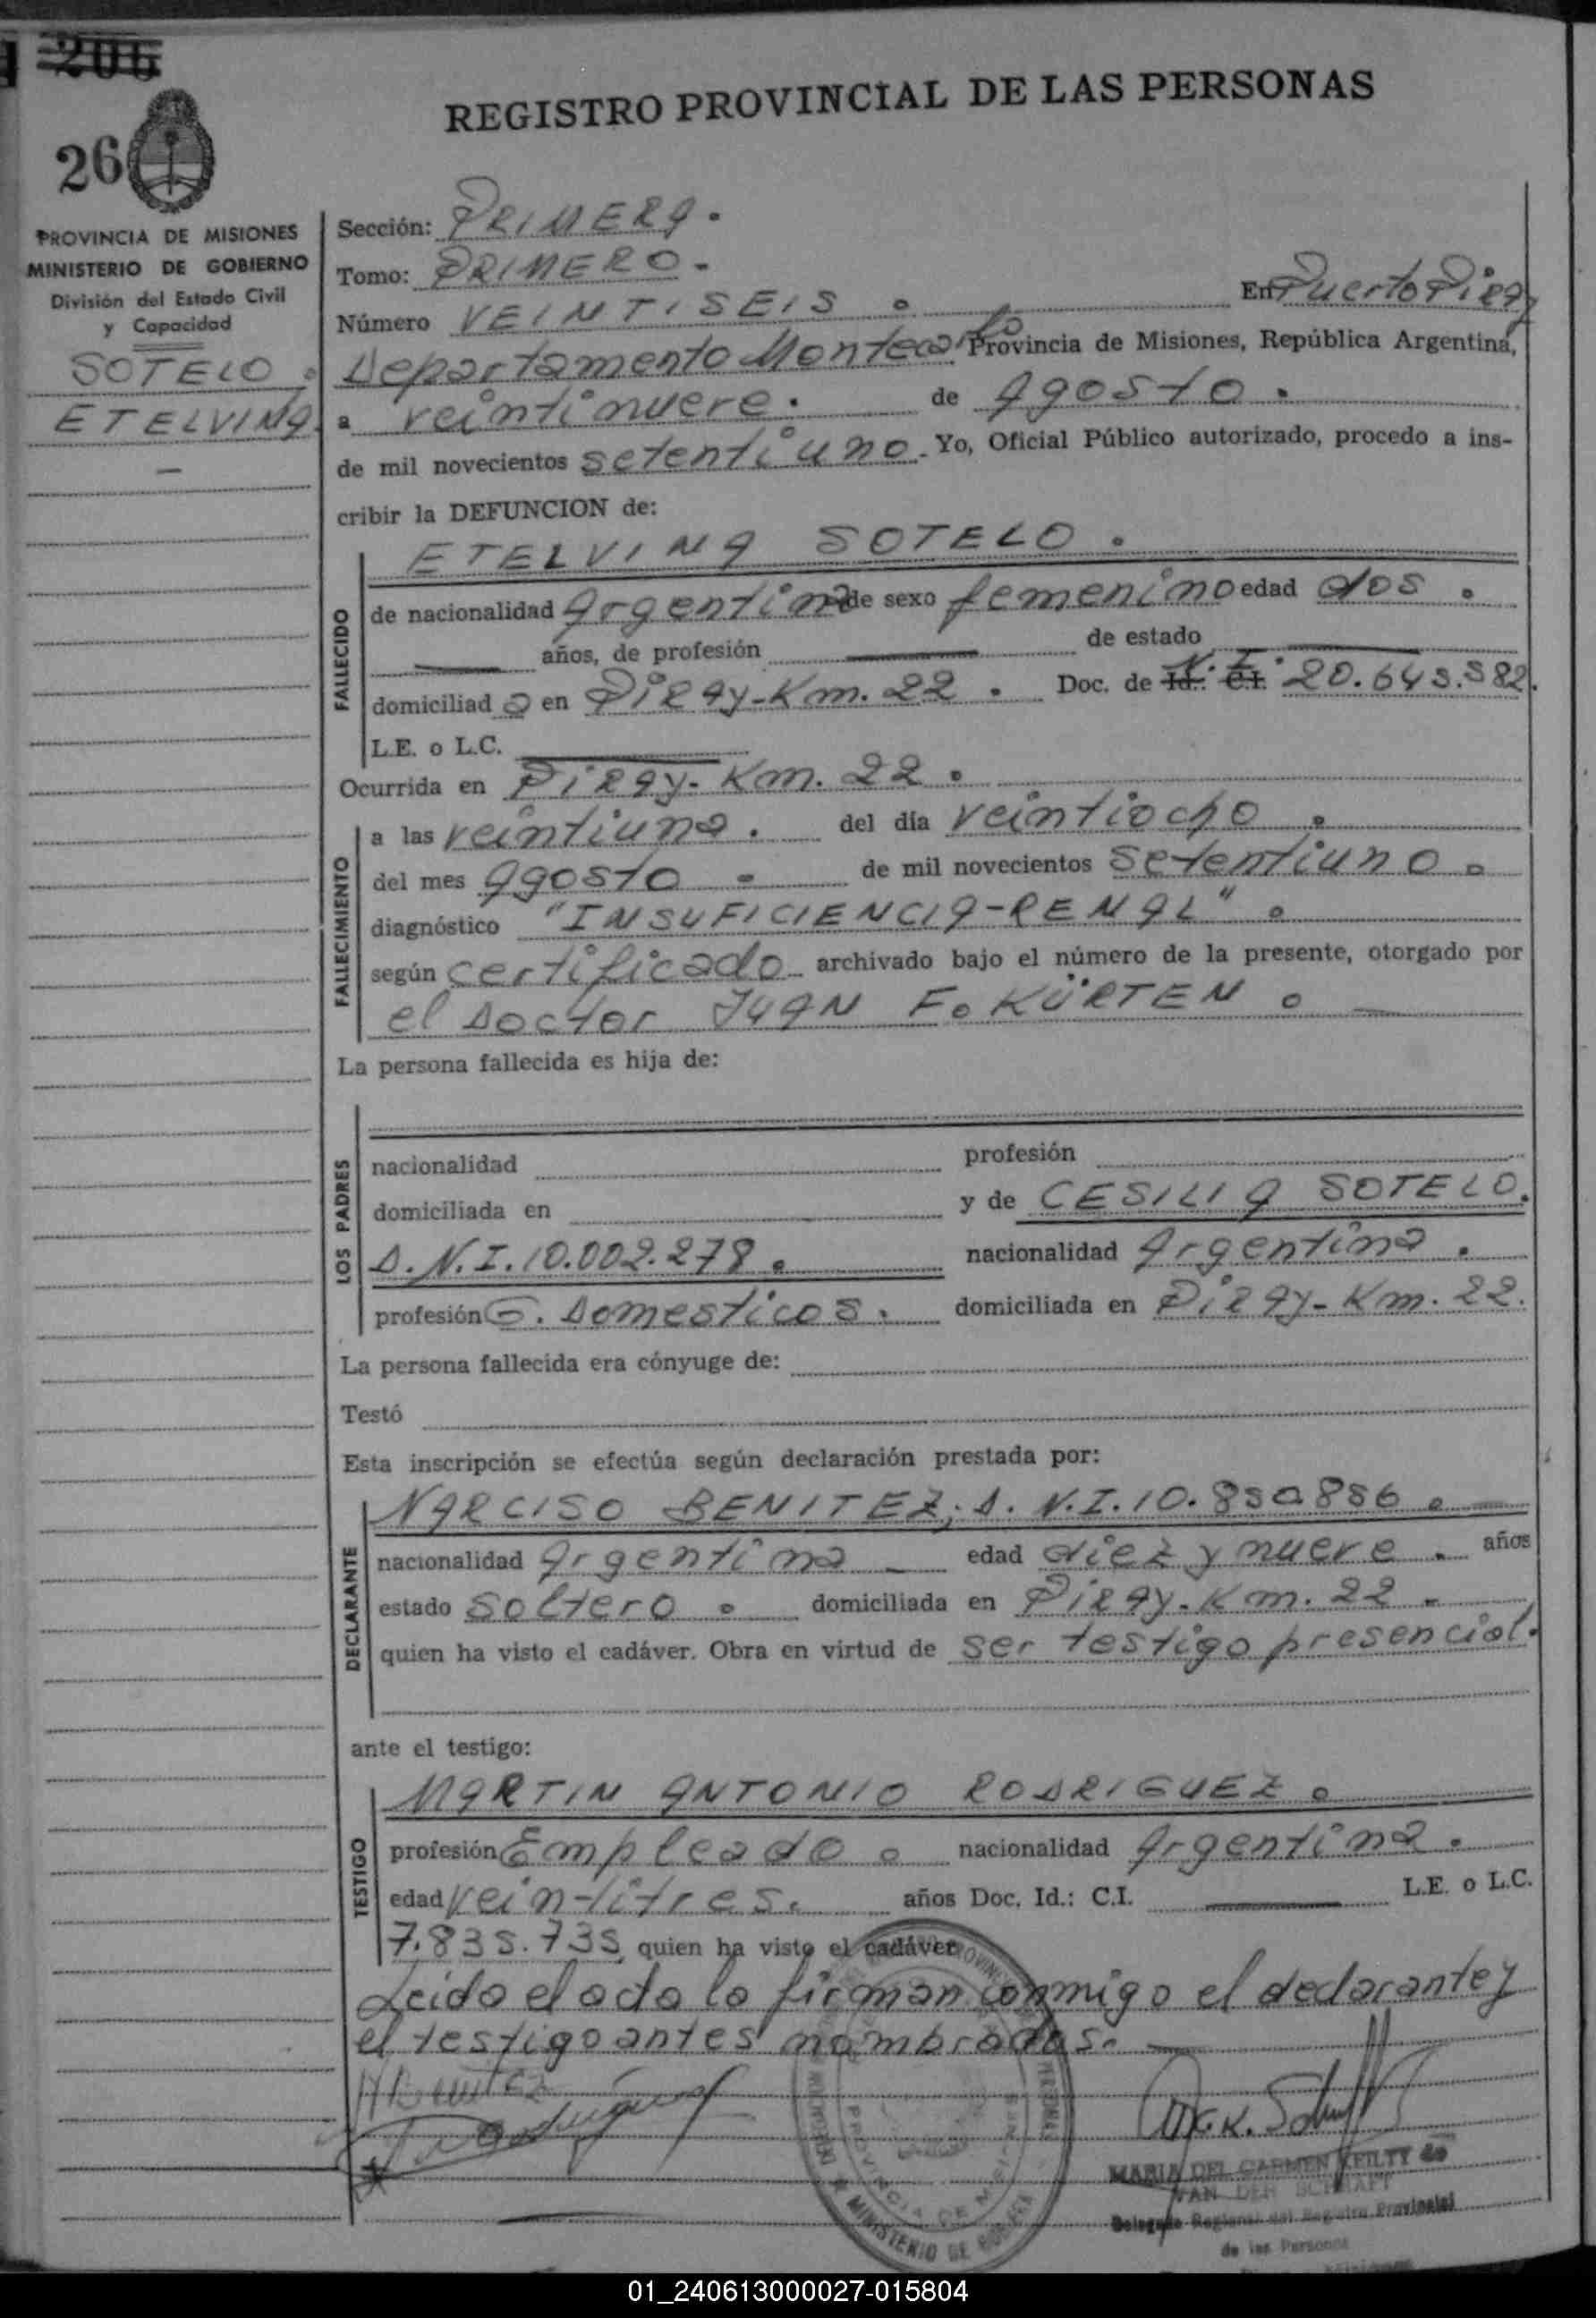 206
REGISTRO PROVINCIAL DE LAS PERSONAS
26
PROVINCIA DE MISIONES
MINISTERIO DE GOBIERNO
División del Estado Civil
y Capacidad
SOTELO.
ETELVINA.
—
Sección: PRIMERA.
Tomo: PRIMERO.
Número VEINTISEIS. En Puerto Piray
Departamento Montecarlo Provincia de Misiones, República Argentina,
a veintinueve. de Agosto.
de mil novecientos setentiuno. Yo, Oficial Público autorizado, procedo a ins-
cribir la DEFUNCION de:
ETELVINA SOTELO.
FALLECIDO
de nacionalidad Argentina de sexo femenino edad dos.
años, de profesión — de estado —
domiciliada en Piray-Km. 22. Doc. de Id.: C.I. 20.643.382.
L.E. o L.C. —
Ocurrida en Piray-Km. 22.
FALLECIMIENTO
a las veintiuna. del día veintiocho.
del mes Agosto. de mil novecientos setentiuno.
diagnóstico "INSUFICIENCIA-RENAL".
según certificado archivado bajo el número de la presente, otorgado por
el Doctor JUAN F. KÜRTEN. —
La persona fallecida es hija de:
LOS PADRES
nacionalidad profesión
domiciliada en y de CESILIA SOTELO.
D.N.I. 10.002.278. nacionalidad Argentina.
profesión Q. Domesticos. domiciliada en Piray-Km. 22.
La persona fallecida era cónyuge de:
Testó
Esta inscripción se efectúa según declaración prestada por:
DECLARANTE
NARCISO BENITEZ, D.N.I. 10.850.856. —
nacionalidad Argentina — edad diez y nueve. años
estado soltero. domiciliada en Piray-Km. 22.
quien ha visto el cadáver. Obra en virtud de ser testigo presencial.
ante el testigo:
TESTIGO
MARTIN ANTONIO RODRIGUEZ.
profesión Empleado. nacionalidad Argentina.
edad veintitres. años Doc. Id.: C.I. — L.E. o L.C.
7.835.735 quien ha visto el cadáver
Leído el acta la firman conmigo el declarante y
el testigo antes nombrados. —
MARIA DEL CARMEN KEILTY de
VAN DER SCHRAFT
Delegada Regional del Registro Provincial
de las Personas
Misiones
PROVINCIA DE MISIONES
MINISTERIO DE
01_240613000027-015804